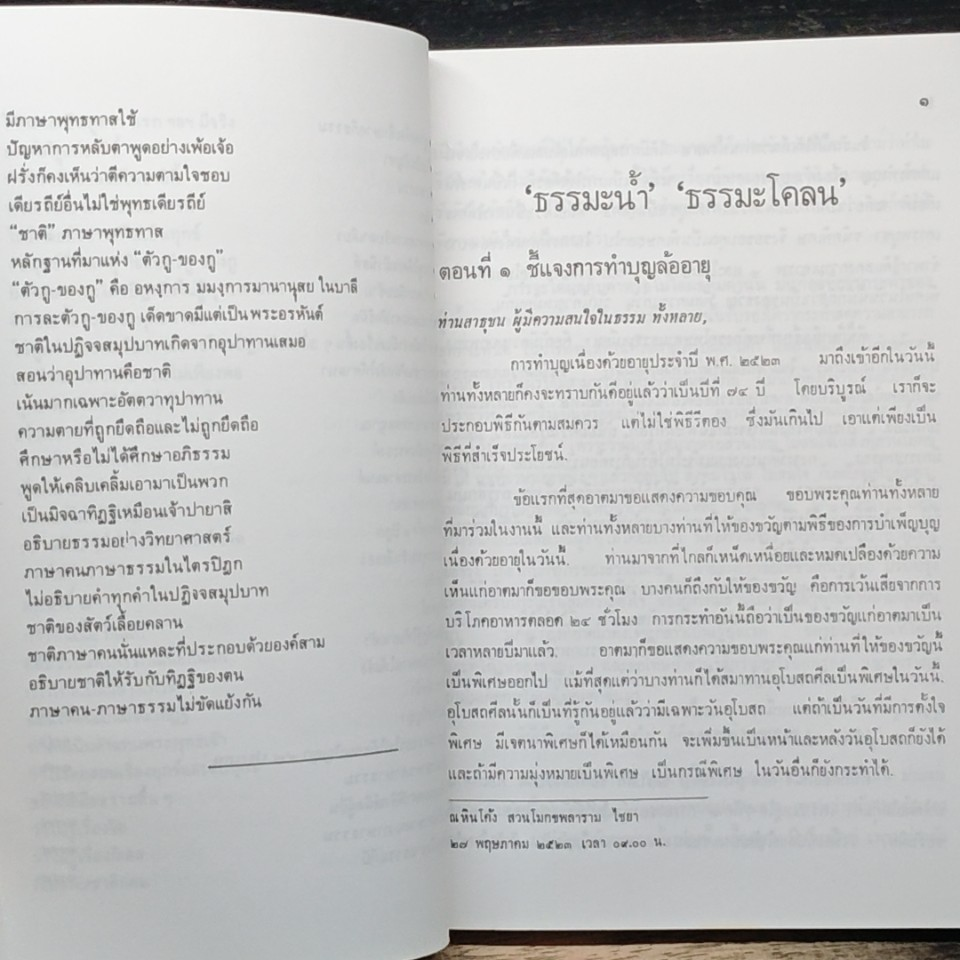 มีภาษาพุทธทาสใช้
ปัญหาการหลับตาพูดอย่างเพ้อเจ้อ
ฝรั่งก็คงเห็นว่าตีความตามใจชอบ
เดียรถีย์อื่นไม่ใช่พุทธเดียรถีย์
“ชาติ” ภาษาพุทธทาส
หลักฐานที่มาแห่ง “ตัวกู-ของกู”
“ตัวกู-ของกู” คือ อหงฺการ มมงฺการมานานุสย ในบาลี
การละตัวกู-ของกู เด็ดขาดมีแต่เป็น พระอรหันต์
ชาติในปฏิจจสมุปบาทเกิดจากอุปาทานเสมอ
สอนว่าอุปาทานคือชาติ
เน้นมากเฉพาะอัตตวาทุปาทาน
ความตายที่ถูกยึดถือและไม่ถูกยึดถือ
ศึกษาหรือไม่ได้ศึกษาอภิธรรม
พูดให้เคลิบเคลิ้มเอามาเป็นพวก
เป็นมิจฉาทิฏฐิเหมือนเจ้าปายาสิ
อธิบายธรรมอย่างวิทยาศาสตร์
ภาษาคนภาษาธรรมในไตรปิฎก
ไม่อธิบายคำทุกคำในปฏิจจสมุปบาท
ชาติของสัตว์เลื้อยคลาน
ชาติภาษาคนนั่นแหละที่ประกอบด้วยองค์สาม
อธิบายชาติให้รับกับทิฏฐิของตน
ภาษาคน-ภาษาธรรมไม่ขัดแย้งกัน
๑
‘ธรรมะน้ำ’ ‘ธรรมะโคลน’
ตอนที่ ๑ ชี้แจงการทำบุญล้ออายุ
ท่านสาธุชน ผู้มีความสนใจในธรรม ทั้งหลาย,
การทำบุญเนื่องด้วยอายุประจำปี พ.ศ. ๒๕๒๓ มาถึงเข้าอีกในวันนี้
ท่านทั้งหลายก็คงจะทราบกันดีอยู่แล้วว่าเป็นปีที่ ๗๔ ปี โดยบริบูรณ์ เราก็จะ
ประกอบพิธีกันตามสมควร แต่ไม่ใช่พิธีรีตอง ซึ่งมันเกินไป เอาแต่เพียงเป็น
พิธีที่สำเร็จประโยชน์.
ข้อแรกที่สุดอาตมาขอแสดงความขอบคุณ ขอบพระคุณท่านทั้งหลาย
ที่มาร่วมในงานนี้ และท่านทั้งหลายบางท่านที่ให้ของขวัญตามพิธีของการบำเพ็ญบุญ
เนื่องด้วยอายุในวันนี้. ท่านมาจากที่ไกลก็เหน็ดเหนื่อยและหมดเปลืองด้วยความ
เห็นแก่อาตมาก็ขอขอบพระคุณ บางคนก็ถึงกับให้ของขวัญ คือการเว้นเสียจากการ
บริโภคอาหารตลอด ๒๔ ชั่วโมง การกระทำอันนี้ถือว่าเป็นของขวัญแก่อาตมาเป็น
เวลาหลายปีมาแล้ว. อาตมาก็ขอแสดงความขอบพระคุณแก่ท่านที่ให้ของขวัญนี้
เป็นพิเศษออกไป แม้ที่สุดแต่ว่าบางท่านก็ได้สมาทานอุโบสถศีลเป็นพิเศษในวันนี้.
อุโบสถศีลนั้นก็เป็นที่รู้กันอยู่แล้วว่ามีเฉพาะวันอุโบสถ แต่ถ้าเป็นวันที่มีการตั้งใจ
พิเศษ มีเจตนาพิเศษก็ได้เหมือนกัน จะเพิ่มขึ้นเป็นหน้าและหลังวันอุโบสถก็ยังได้
และถ้ามีความมุ่งหมายเป็นพิเศษ เป็นกรณีพิเศษ ในวันอื่นก็ยังกระทำได้.
ณ หินโค้ง สวนโมกขพลาราม ไชยา
๒๗ พฤษภาคม ๒๕๒๓ เวลา ๐๙.๐๐ น.